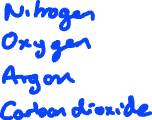 Nitrogen
Oxygen
Argon
Carbon dioxide